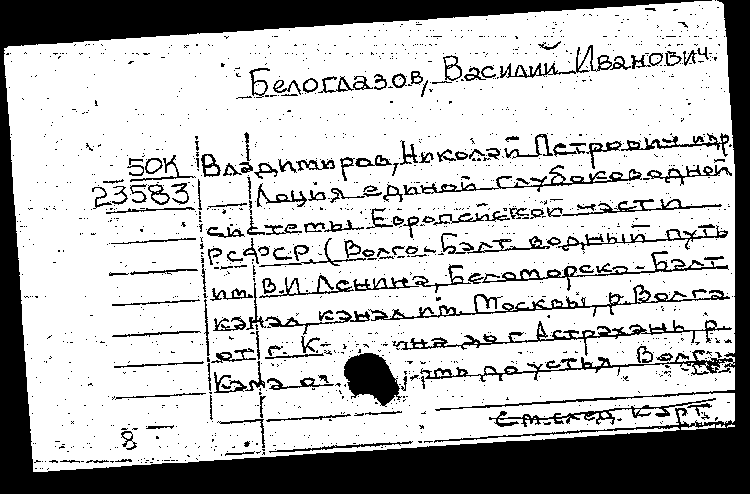 Белоглазов, Василий Иванович.
50К Владимиров, Николай Петрович и др.
23583 Лоция единой глубоководной
системы Европейской части
РСФСР. (Волго-Балт. водный путь
им. В.И Ленина, Беломорско-Балт
канал, канал им. Москвы, р. Волга
от г. до г. Астрахань, р.
Кама от до устья,
См. след. карт.
8